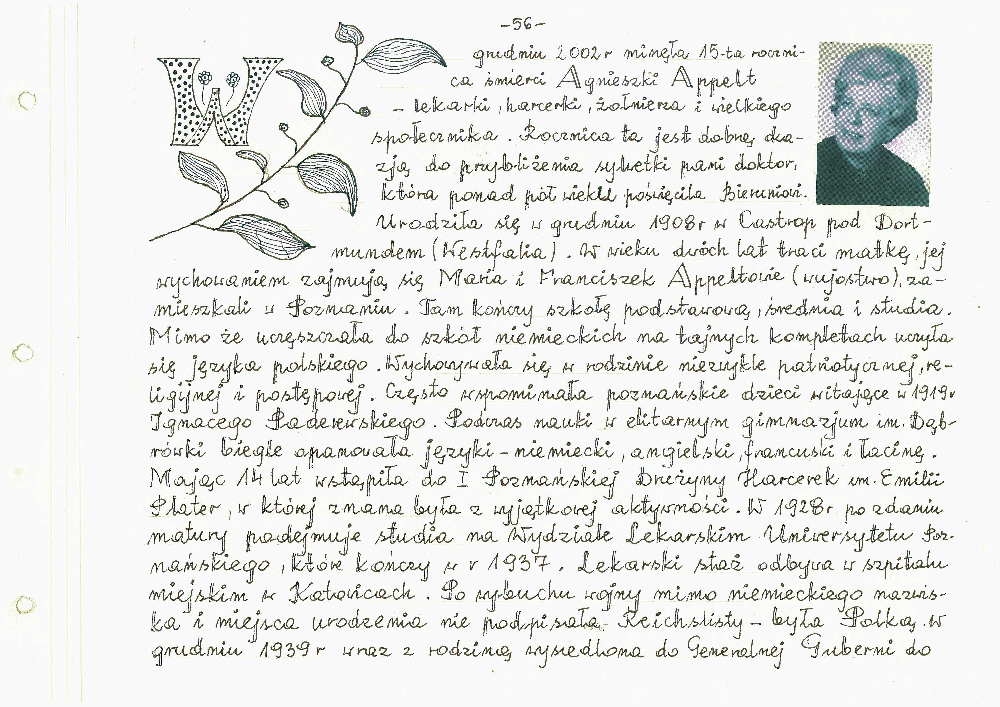 -56-
W grudniu 2002r minęła 15-ta roczni-
ca śmierci Agnieszki Appelt
- lekarki, harcerki, żołnierza i wielkiego
społecznika. Rocznica ta jest dobrą oka-
zją do przybliżenia sylwetki pani doktor,
która ponad pół wieku poświęciła Bieruniowi.
Urodziła się w grudniu 1908r w Castrop pod Dort-
mundem (Westfalia). W wieku dwóch lat traci matkę, jej
wychowaniem zajmują się Maria i Franciszek Appeltowie (wujostwo), za-
mieszkali w Poznaniu. Tam kończy szkołę podstawową, średnia i studia.
Mimo że uczęszczała do szkół niemieckich na tajnych kompletach uczyła
się języka polskiego. Wychowywała się w rodzinie niezwykle patriotycznej, re-
ligijnej i postępowej. Często wspominała poznańskie dzieci witające w 1919r
Ignacego Paderewskiego. Podczas nauki w elitarnym gimnazjum im. Dąb-
rówki biegle opanowała języki - niemiecki, angielski, francuski i łacinę.
Mając 14 lat wstąpiła do I Poznańskiej Drużyny Harcerek im. Emilii
Plater, w której znana była z wyjątkowej aktywności. W 1928r po zdaniu
matury podejmuje studia na Wydziale Lekarskim Uniwersytetu Poz-
nańskiego, które kończy w r 1937. Lekarski staż odbywa w szpitalu
miejskim w Katowicach. Po wybuchu wojny mimo niemieckiego nazwis-
ka i miejsca urodzenia nie podpisała Reichslisty - była Polką. W
grudniu 1939r wraz z rodziną wysiedlona do Generalnej Guberni do